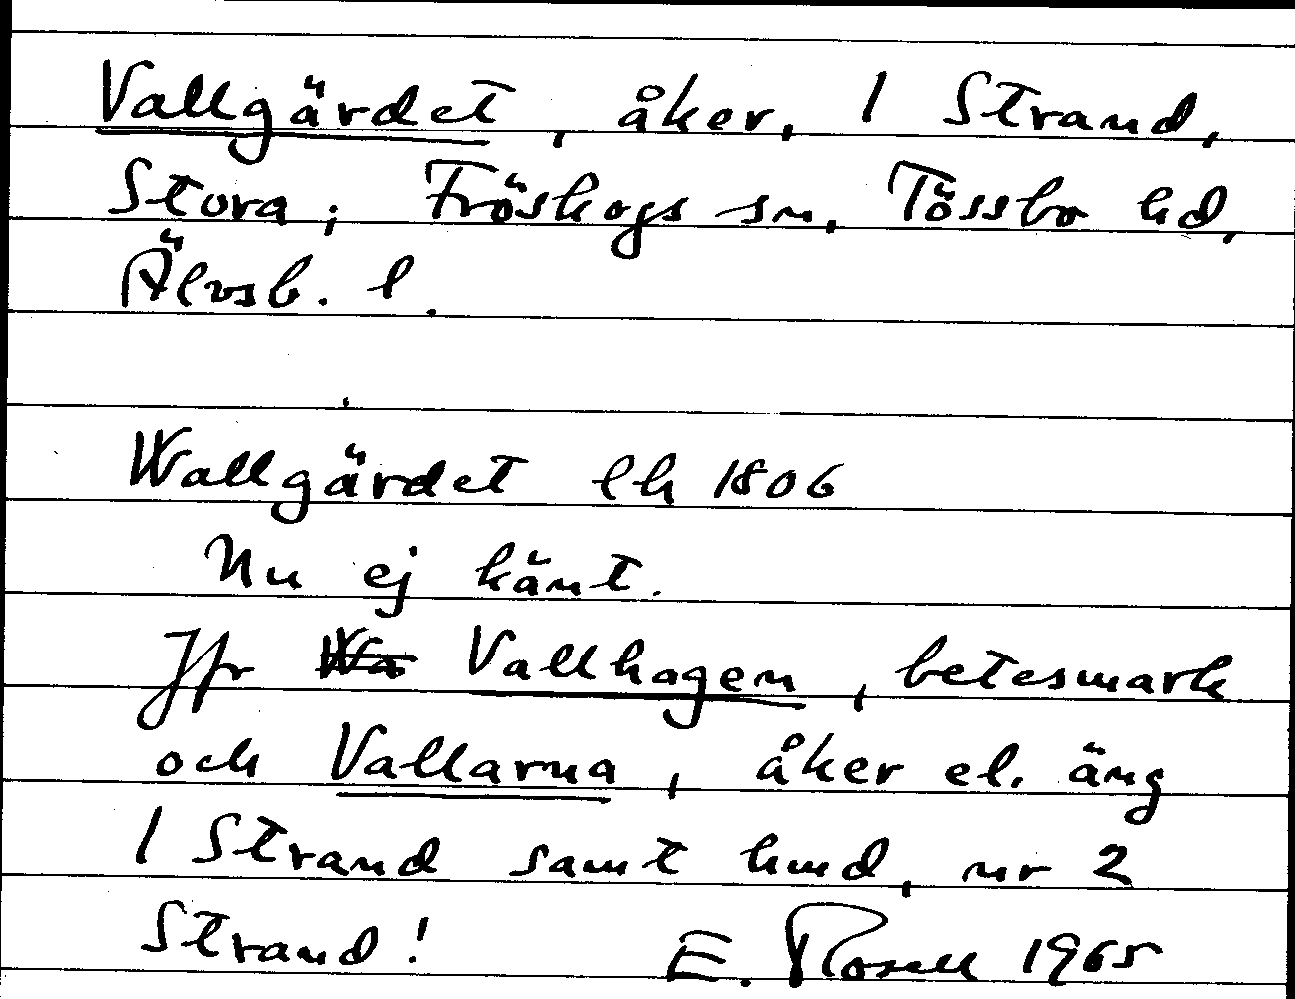 Vallgärdet, åker, 1 Strand,
Stora, Fröskogs sn, Tössbo hd,
Älvsb. l.
Wallgärdet lh 1806
Nu ej känt.
Jfr Wa Vallhagen, betesmark
och Vallarna, åker el. äng
1 Strand samt hmd, nr 2
Strand! E. Rosell 1965